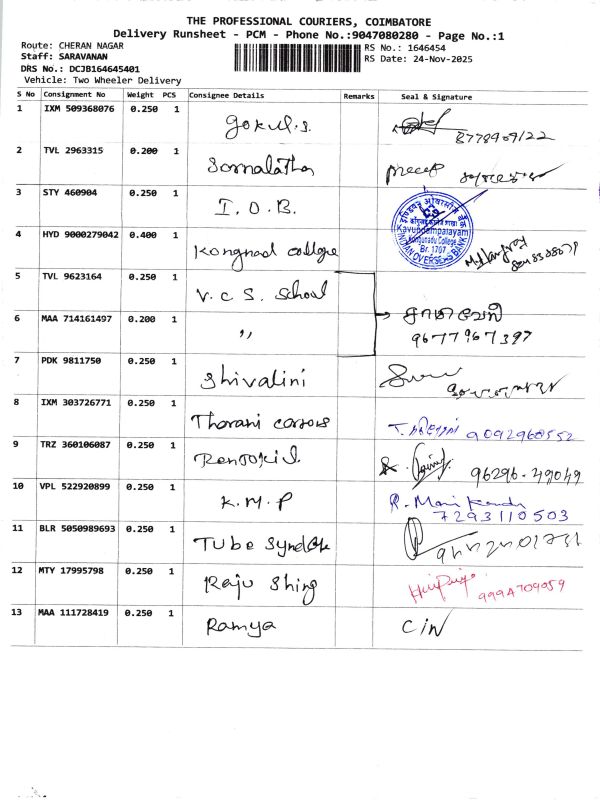 THE PROFESSIONAL COURIERS, COIMBATORE
Delivery Runsheet - PCM - Phone No.:9047080280 - Page No.:1
Route: CHERAN NAGAR
RS No.: 1646454
Staff: SARAVANAN
RS Date: 24-Nov-2025
DRS No.: DCJB164645401
Vehicle: Two Wheeler Delivery
S No Consignment No Weight PCS Consignee Details Remarks Seal & Signature
1 IXM 509368076 0.250 1 gokul.s. 8778909122
2 TVL 2963315 0.200 1
3 STY 460904 0.250 1 I.O.B.
Kavundampalayam
Kongunadu College
Br. 1707
INDIAN OVERSEAS BANK
4 HYD 9000279042 0.400 1 Kongnad college
5 TVL 9623164 0.250 1 V.C.S. School
6 MAA 714161497 0.200 1 ,, 9677967397
7 PDK 9811750 0.250 1 Shivalini
8 IXM 303726771 0.250 1 Tharani 9092960552
9 TRZ 360106087 0.250 1 96296-49049
10 VPL 522920899 0.250 1 K.M.P R. Mani
7293110503
11 BLR 5050989693 0.250 1 Tube
12 MTY 17995798 0.250 1 Raju Shing 9994709059
13 MAA 111728419 0.250 1 Ramya